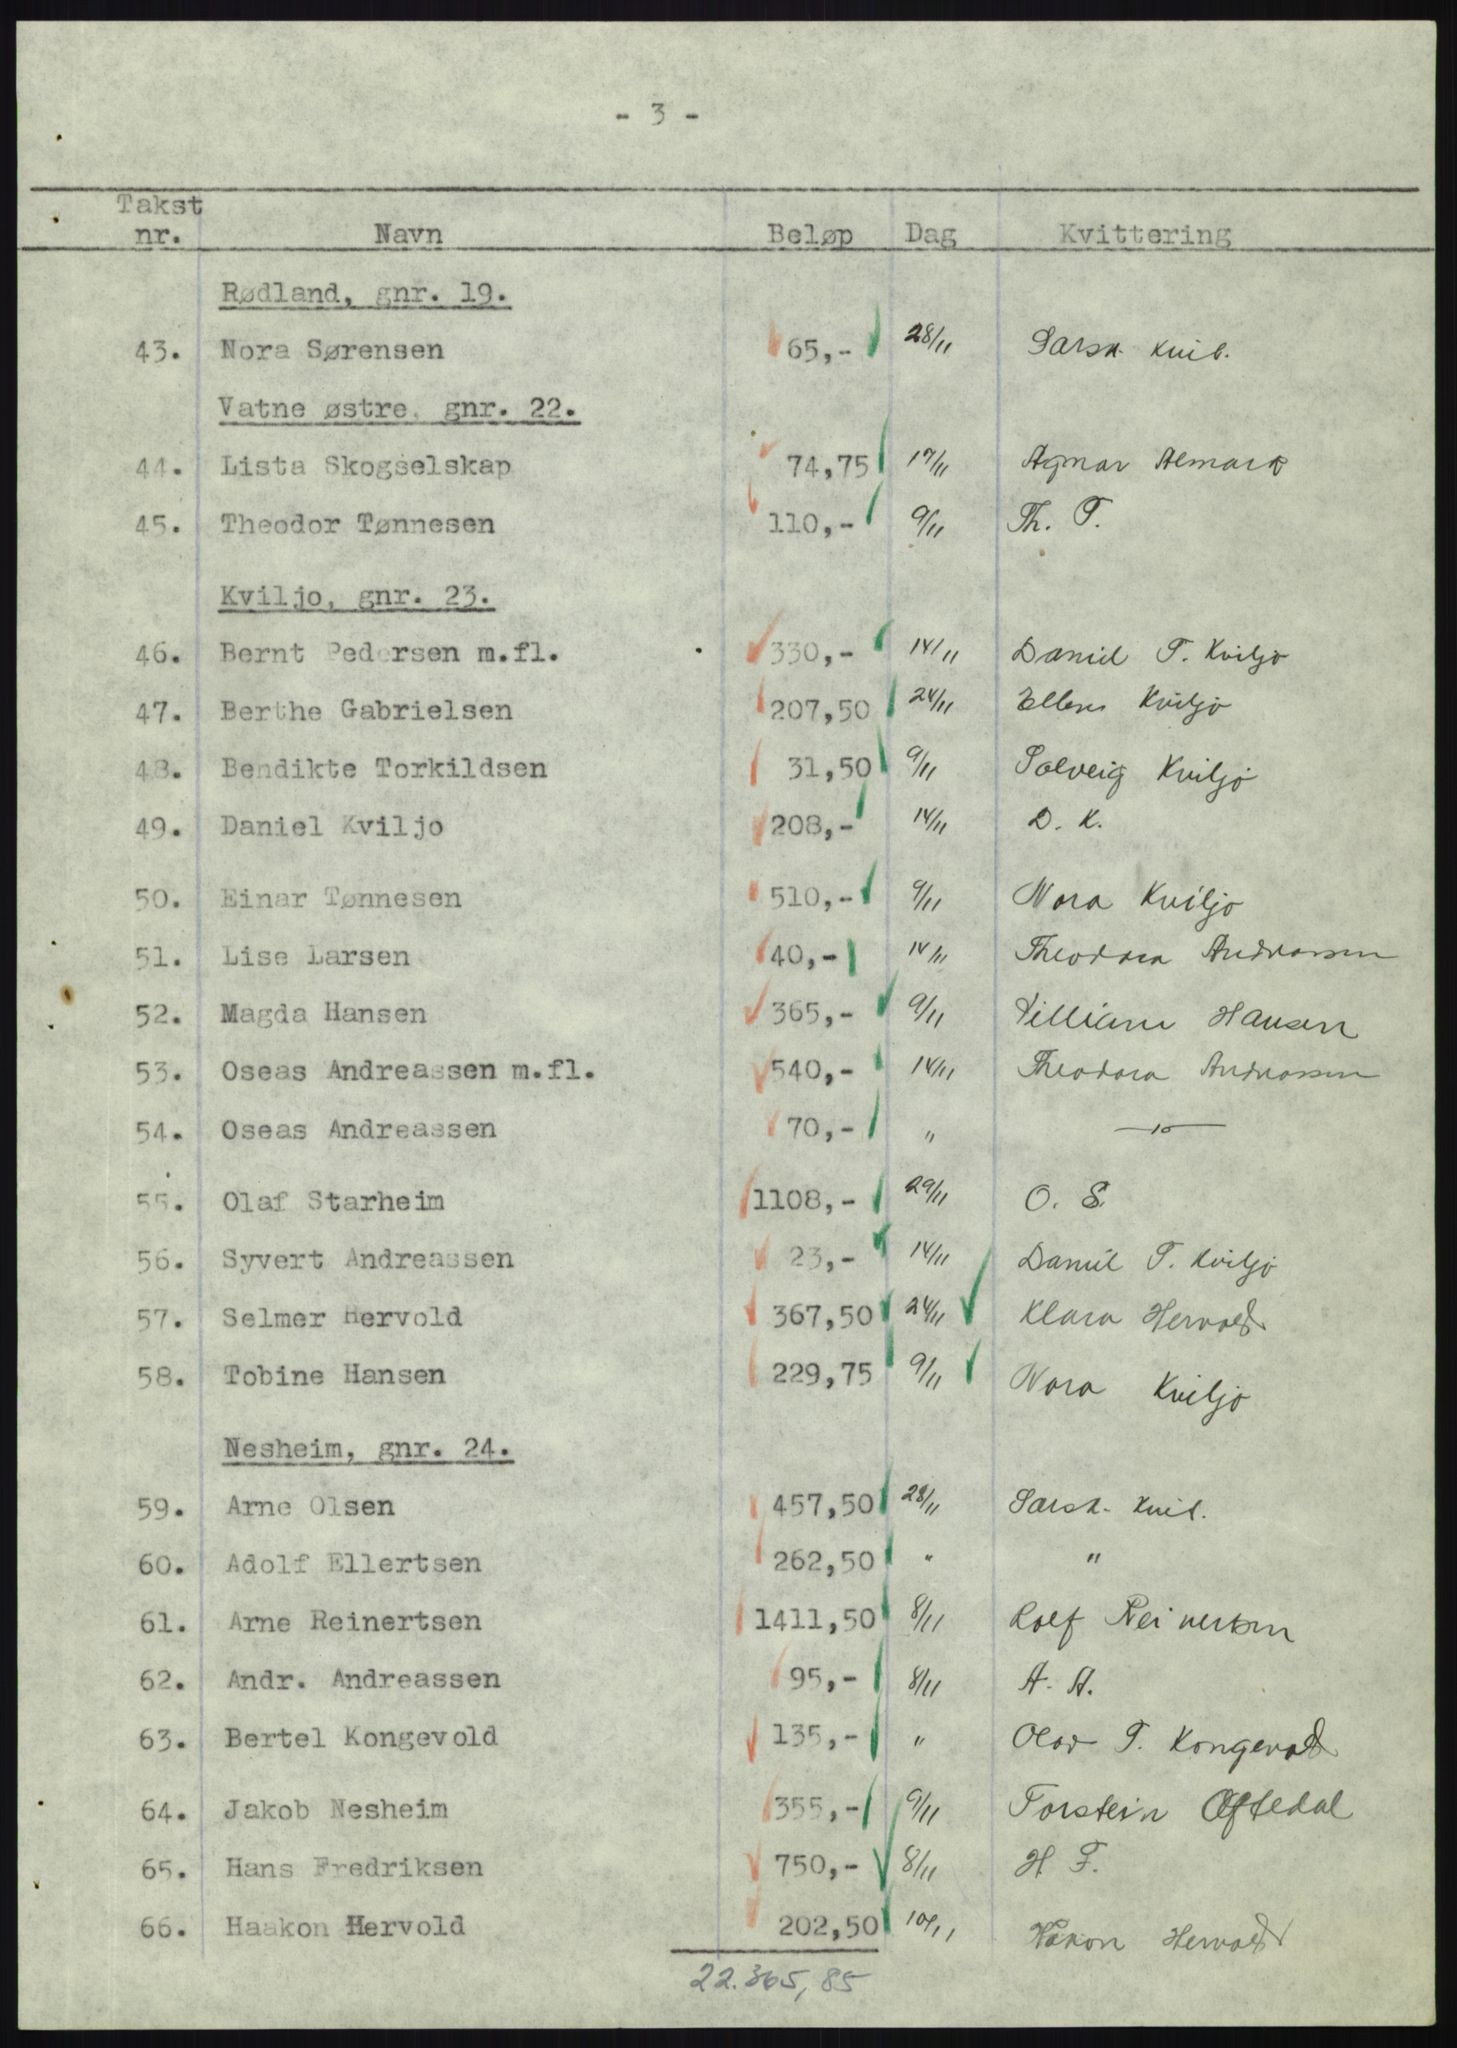 - 3 -
Takst nr. Navn Beløp Dag Kvittering
Rødland, gnr. 19.
43. Nora Sørensen 65,- 28/11 Særsk. kvit.
Vatne østre, gnr. 22.
44. Lista Skogselskap 74,75 17/11 Agmar Almark
45. Theodor Tønnesen 110,- 9/11 Th. T.
Kviljo, gnr. 23.
46. Bernt Pedersen m.fl. 330,- 14/11 Daniel T. Kviljo
47. Berthe Gabrielsen 207,50 24/11 Ellen Kviljo
48. Bendikte Torkildsen 31,50 9/11 Solveig Kviljo
49. Daniel Kviljo 208,- 14/11 D. K.
50. Einar Tønnesen 510,- 9/11 Nora Kviljo
51. Lise Larsen 40,- 14/11 Theodora Andreassen
52. Magda Hansen 365,- 9/11 Villiam Hansen
53. Oseas Andreassen m.fl. 540,- 14/11 Theodora Andreassen
54. Oseas Andreassen 70,- " —"—
55. Olaf Starheim 1108,- 29/11 O. S.
56. Syvert Andreassen 23,- 14/11 Daniel T. Kviljo
57. Selmer Hervold 367,50 24/11 Klara Hervold
58. Tobine Hansen 229,75 9/11 Nora Kviljo
Nesheim, gnr. 24.
59. Arne Olsen 457,50 28/11 Særsk. kvit.
60. Adolf Ellertsen 262,50 " "
61. Arne Reinertsen 1411,50 8/11 Rolf Reinertsen
62. Andr. Andreassen 95,- 8/11 A. A.
63. Bertel Kongevold 135,- " Olav T. Kongevold
64. Jakob Nesheim 355,- 9/11 Torstein Oftedal
65. Hans Fredriksen 750,- 8/11 H F.
66. Haakon Hervold 202,50 10/11 Håkon Hervold
22.365,85